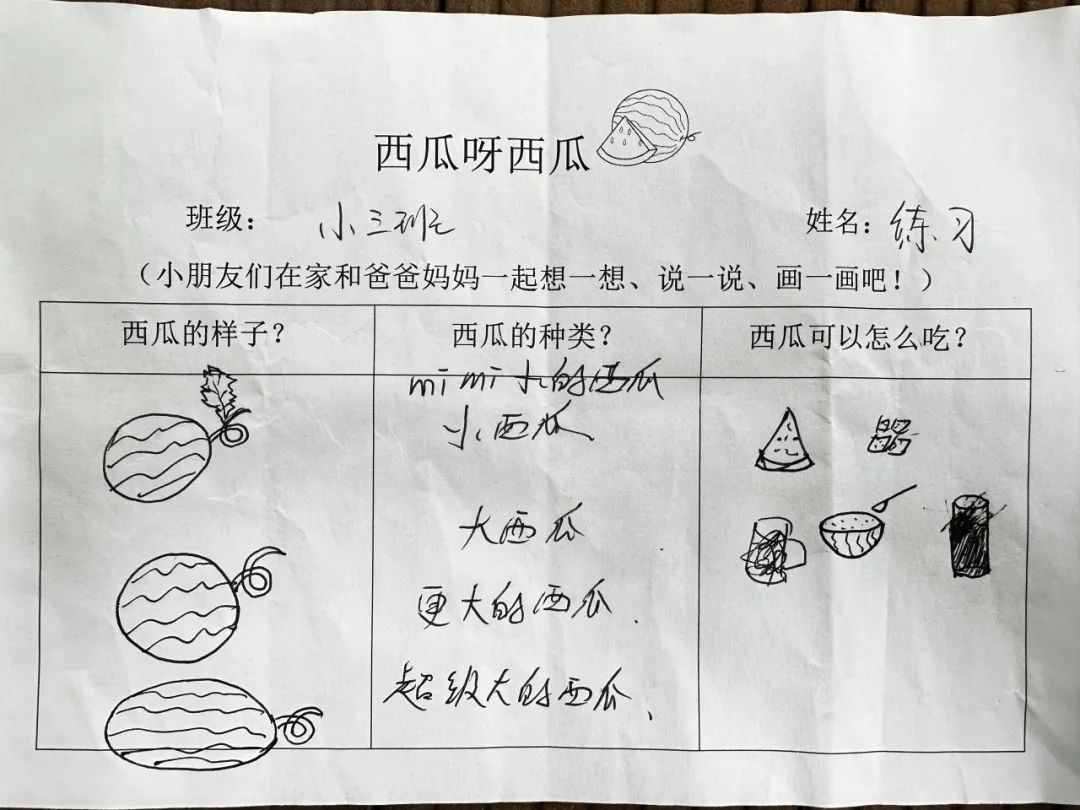 西瓜呀西瓜
班级： 小三班 姓名：练习
（小朋友们在家和爸爸妈妈一起想一想、说一说、画一画吧！）
西瓜的样子？ 西瓜的种类？ 西瓜可以怎么吃？
mi mi 小的西瓜
小西瓜、
大西瓜
更大的西瓜.
超级大的西瓜、